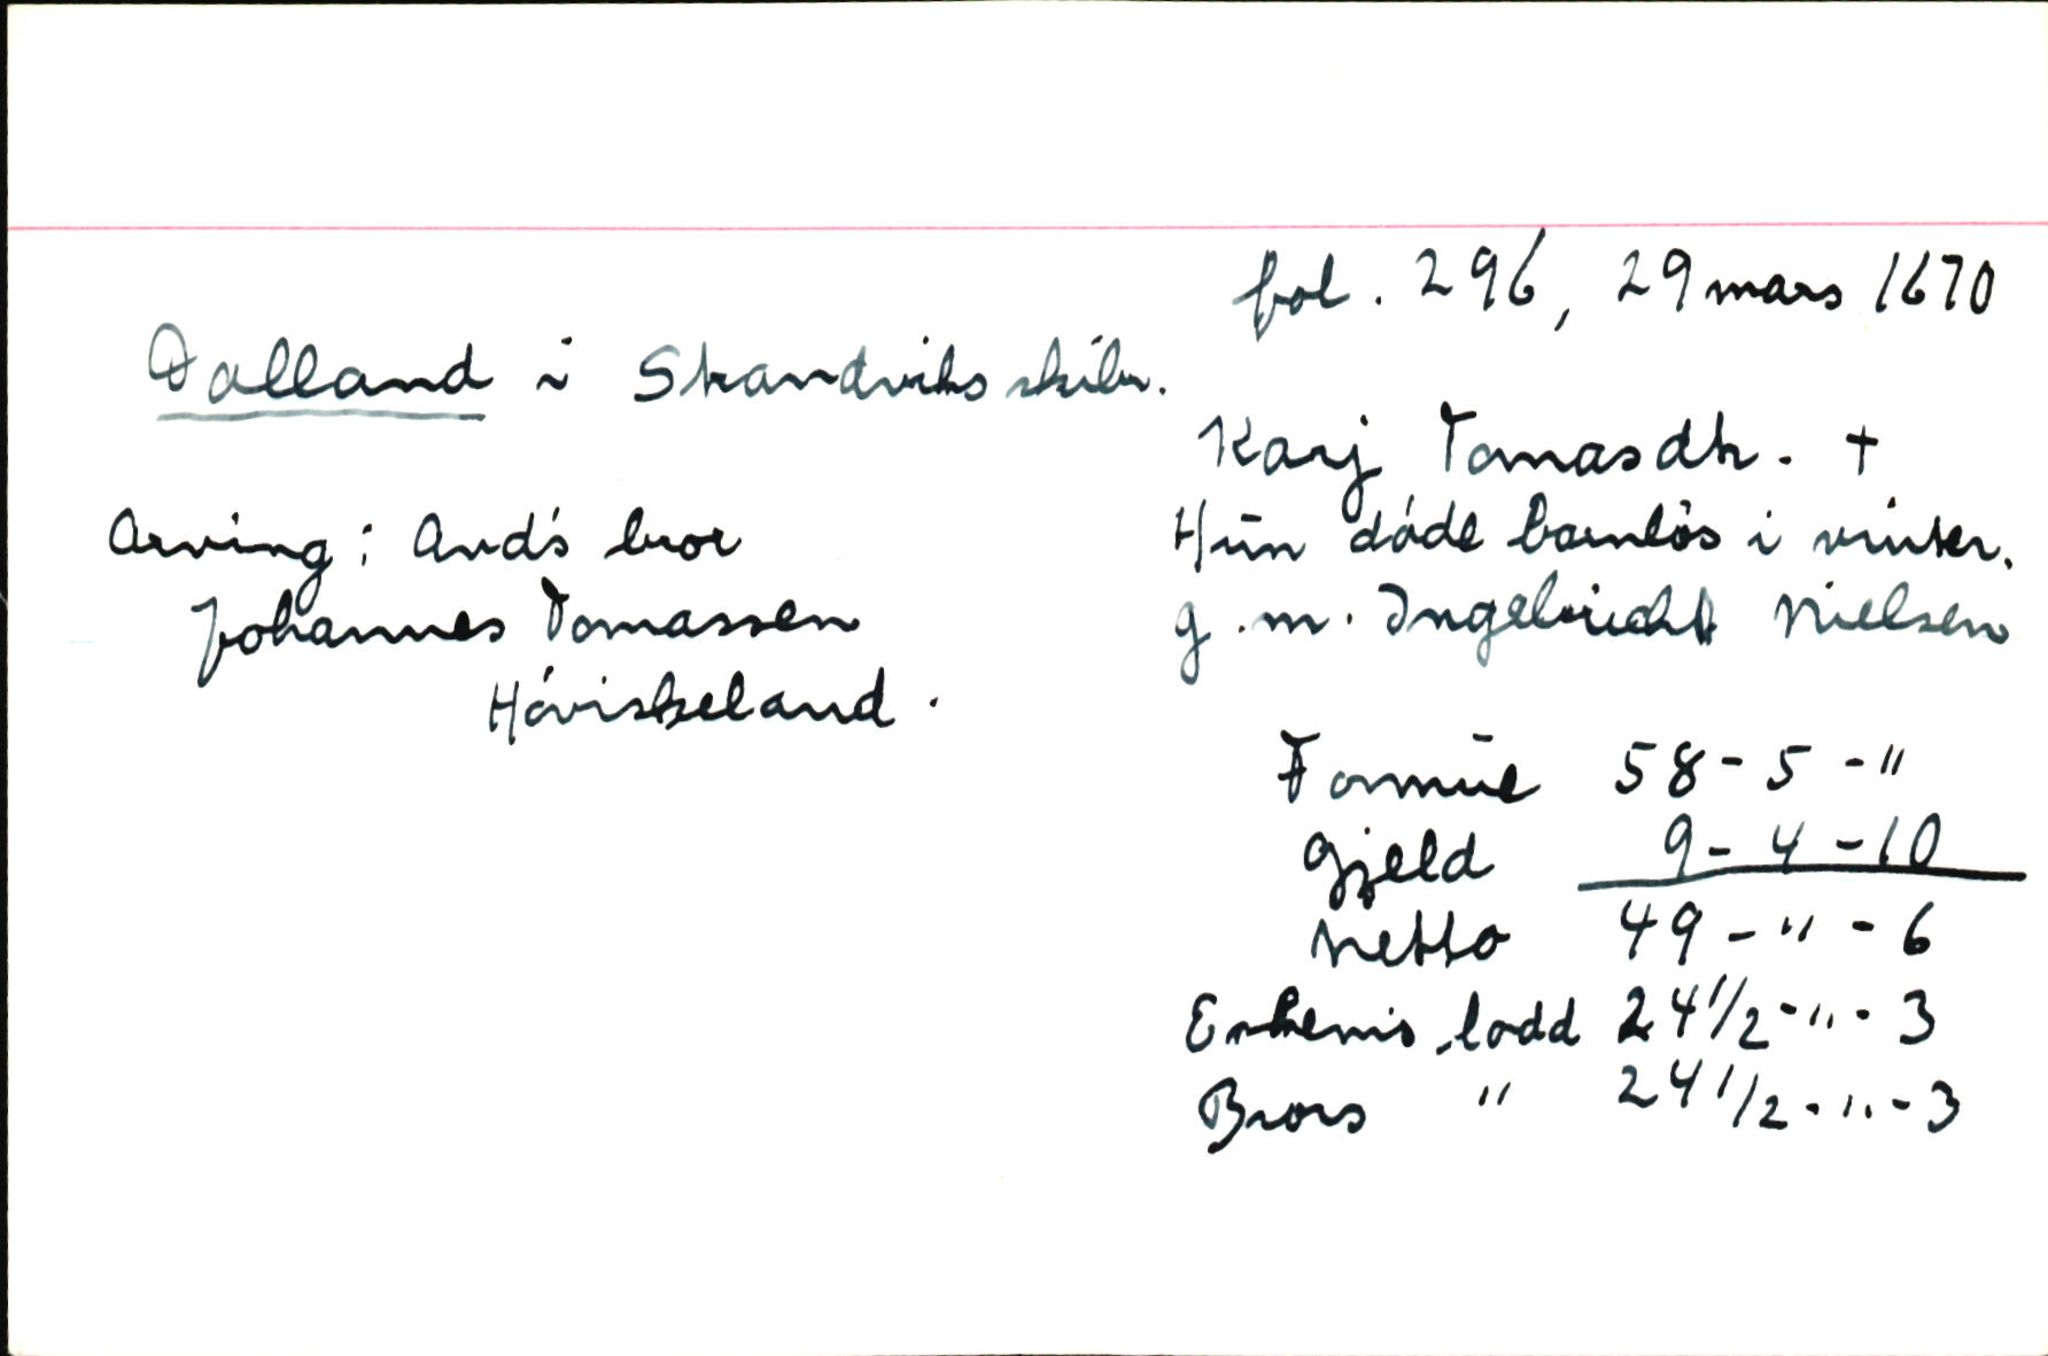 fol. 296, 29 mars 1670
Dalland i Skandviks skibr.
Karj Tomasdtr. †
Hun døde barnløs i vinter.
g.m. Ingebricht Nielsen
Arving: Avd's bror
Johannes Tomassen
Høviskeland.
Formue 58 - 5 - "
Gjeld 9 - 4 - 10
Netto 49 - " - 6
Enkem's lodd 24 1/2 - " - 3
Brors " 24 1/2 - " - 3